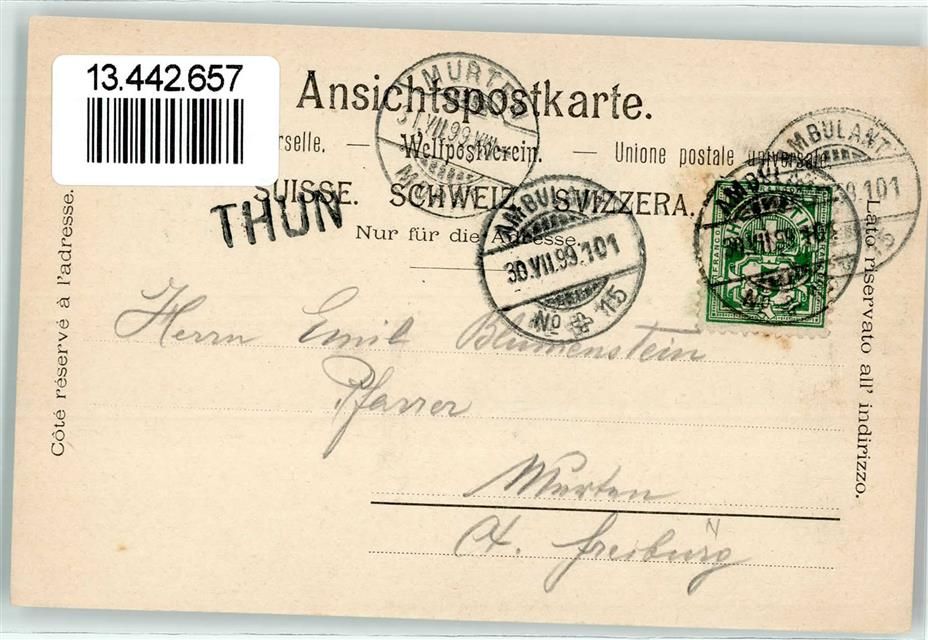 13.442.657
Ansichtspostkarte.
MURTEN
31.VII.99.VIII
erselle. — Weltpostverein. — Unione postale universale.
SUISSE. SCHWEIZ. SVIZZERA.
THUN
Nur für die Adresse.
AMBULANT
30.VII.99.101
No 115
AMBULANT
30.VII.99.101
No
AMBULANT
99.101
115
FRANCO
HELVETIA
Côté réservé à l'adresse.
Lato riservato all' indirizzo.
Herrn Emil Blumenstein
Pfarrer
Murten
Kt. Freiburg
N